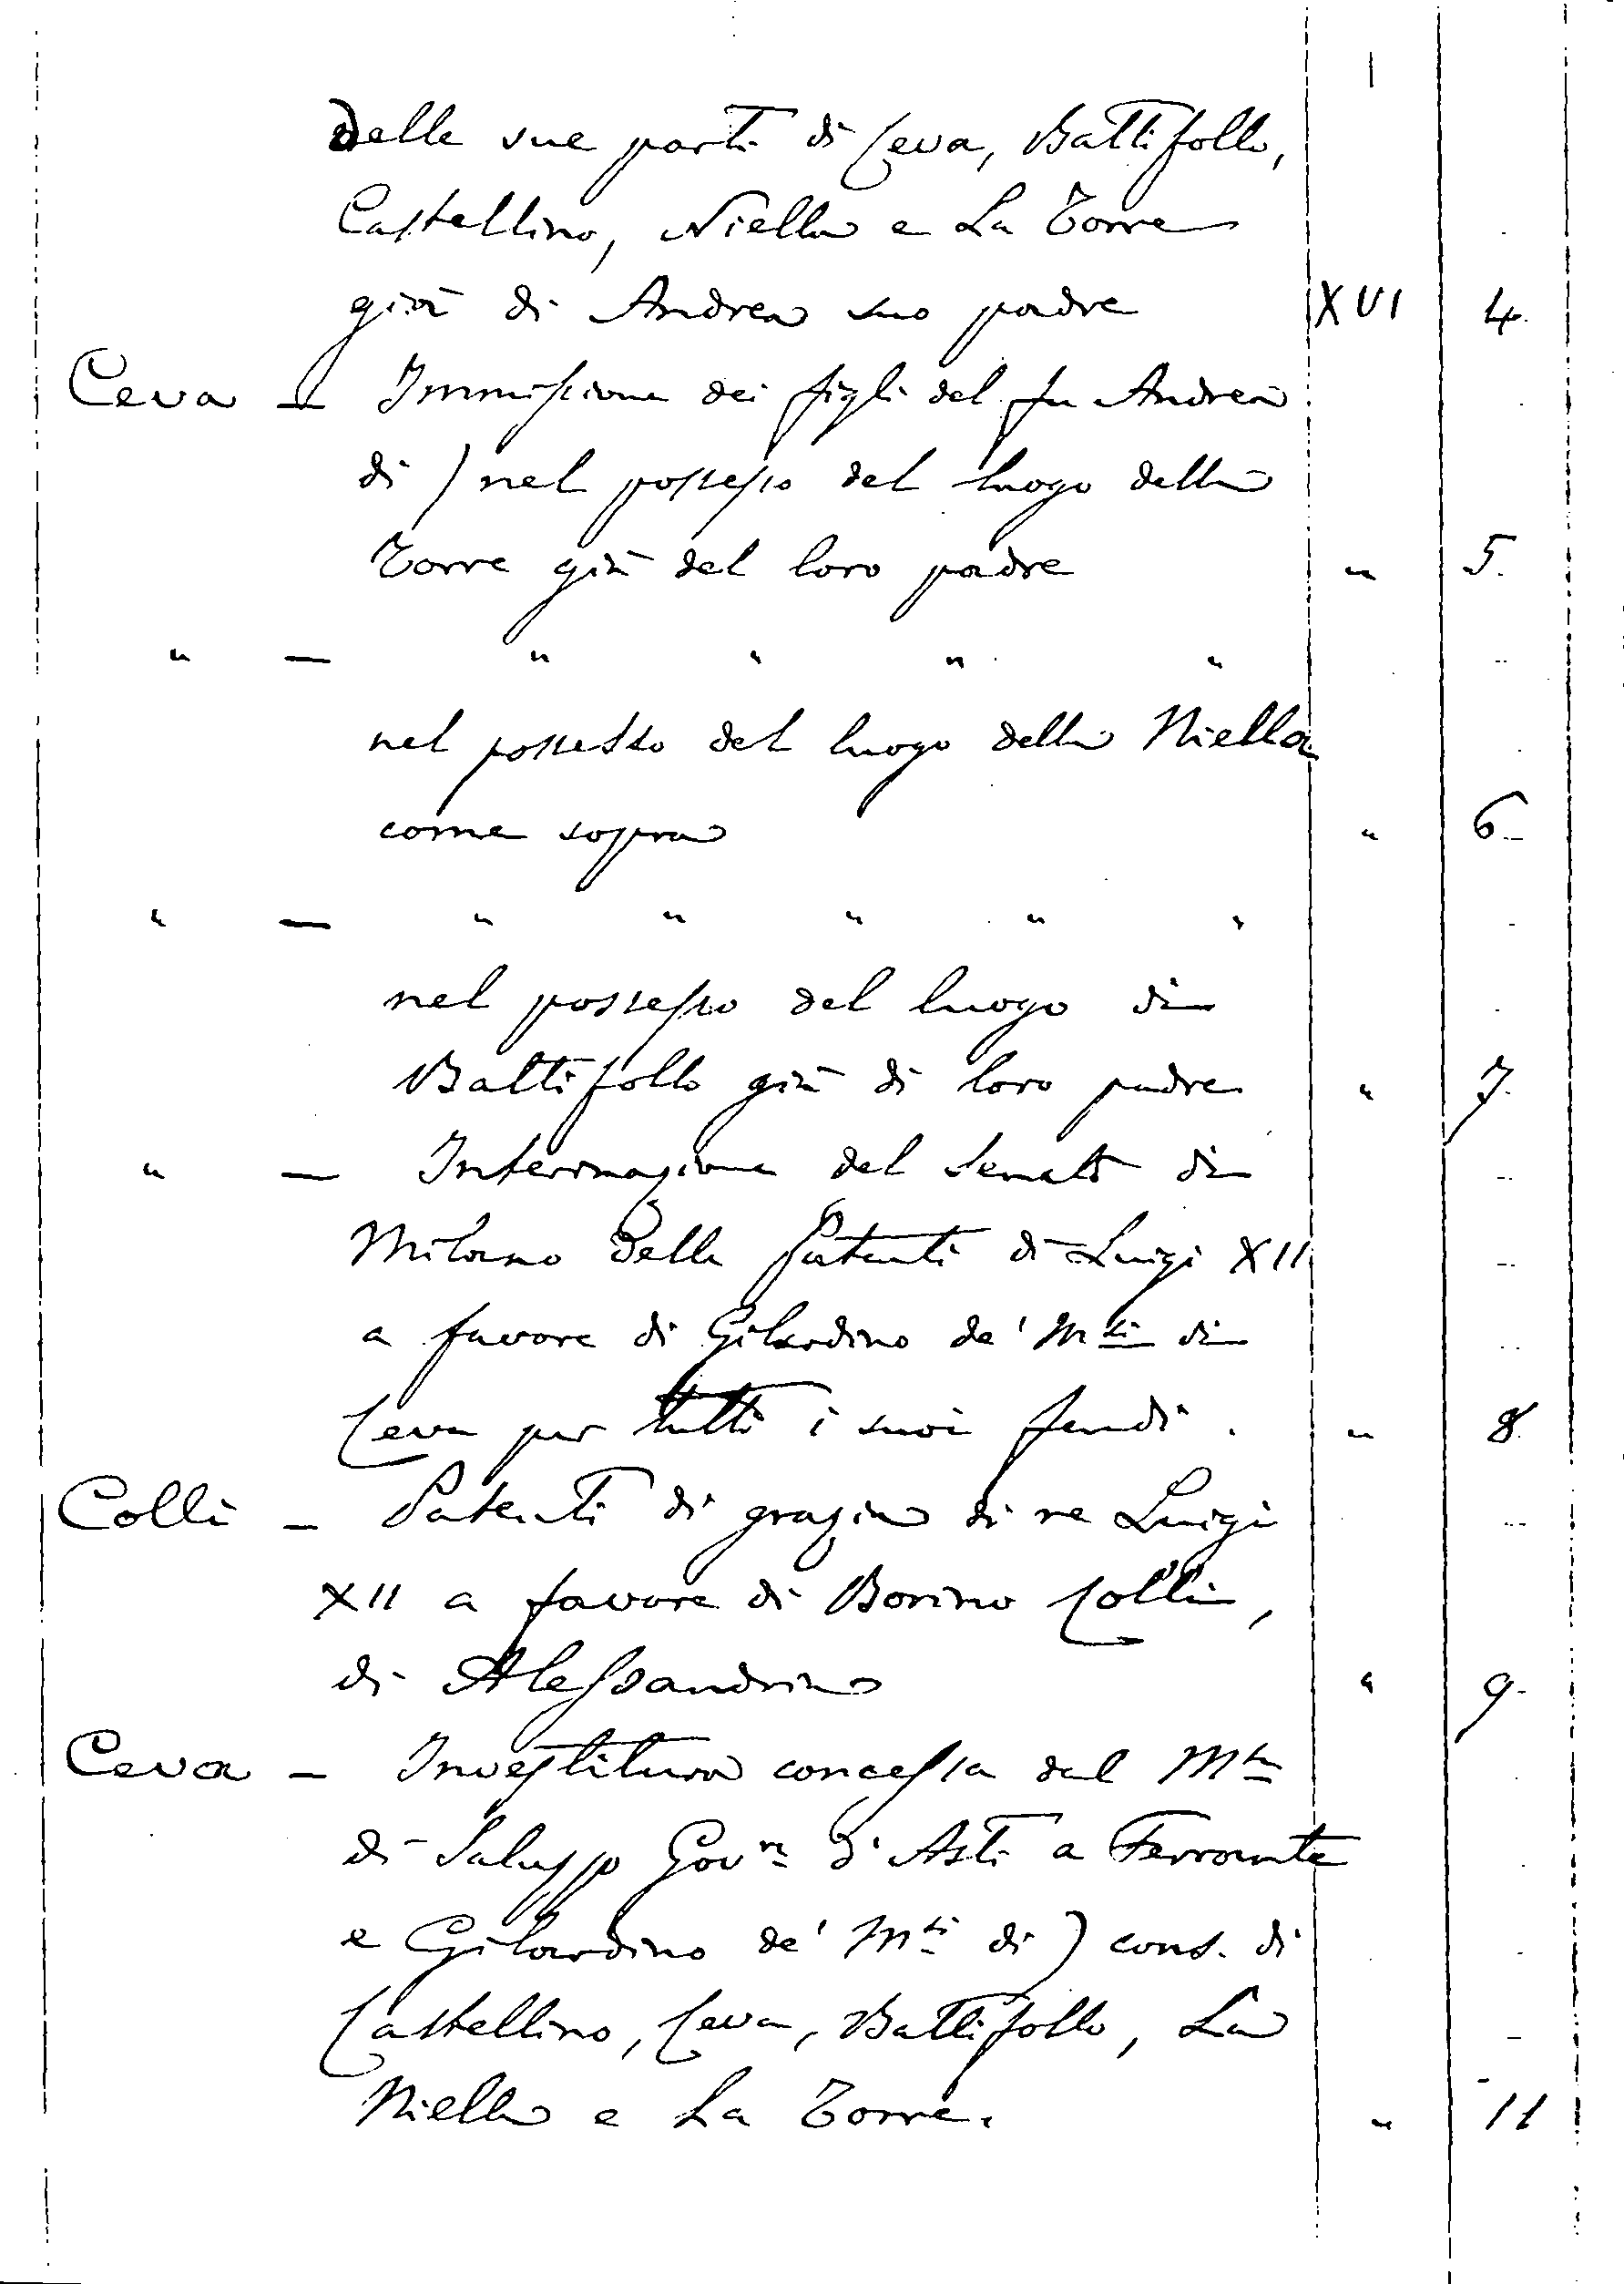 delle sue parti di Ceva, Battifollo,
Castellino, Niella e La Torre
già di Andrea suo padre XVI 4.
Ceva — Immissione dei figli del fu Andrea
di) nel possesso del luogo della
Torre già del loro padre " 5.
" — " " " "
nel possesso del luogo della Niella
come sopra " 6.
" — " " " " "
nel possesso del luogo di
Battifollo già di loro padre " 7.
" — Interinazione del Senato di
Milano delle Patenti di Luigi XII
a favore di Gilardino de' Msi di
Ceva per tutti i suoi feudi. " 8.
Colli — Patenti di grazia di re Luigi
XII a favore di Borino Colli,
di Alessandria " 9.
Ceva — Investitura concessa dal Mse
di Saluzzo Govre d'Asti a Ferrante
e Gilardino de' Msi di) cons. di
Castellino, Ceva, Battifollo, La
Niella e La Torre. " 11